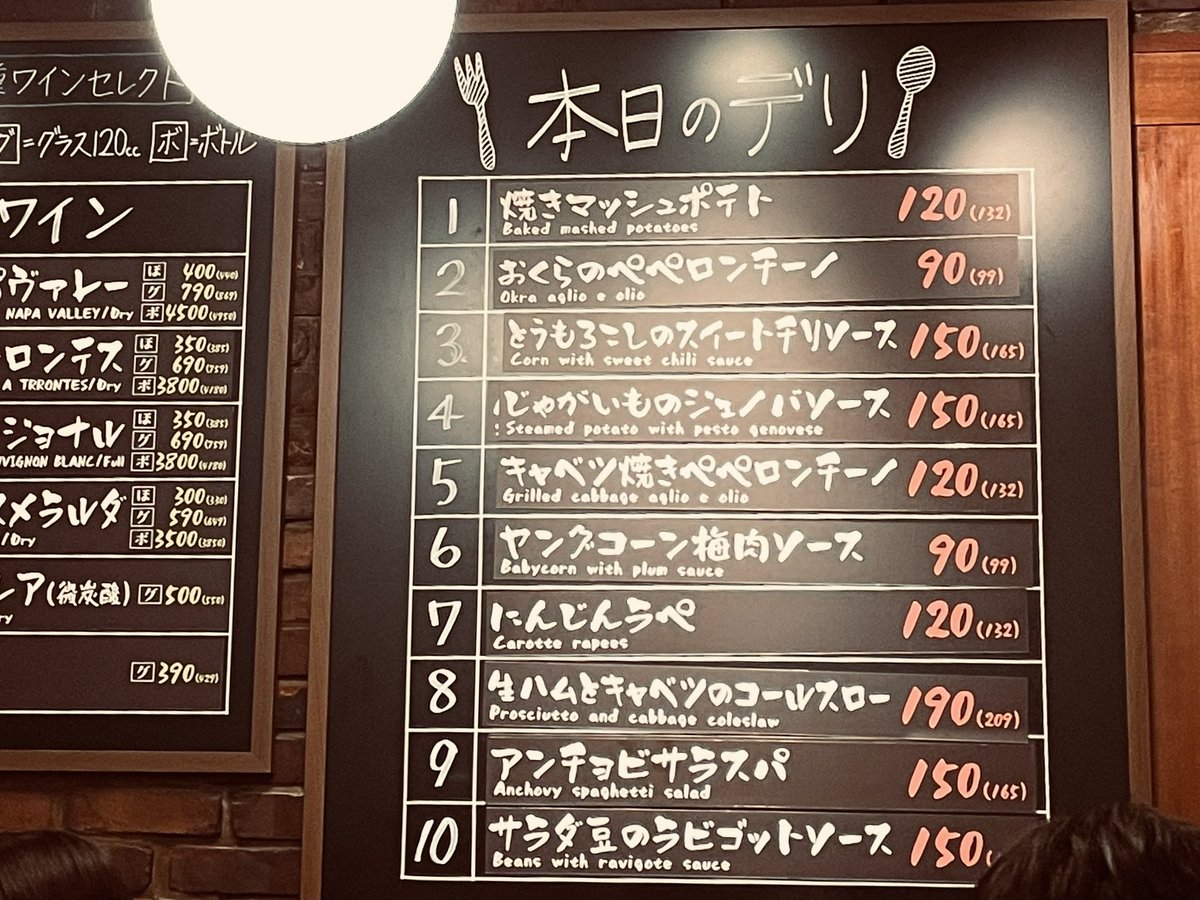 ワインセレクト
グ=グラス120cc ボ=ボトル
ワイン
ヴァレー ほ 400(440)
グ 790(869)
NAPA VALLEY/Dry ボ 4500(4950)
ロンテス ほ 350(385)
グ 690(759)
A TRRONTES/Dry ボ 3800(4180)
ジョナル ほ 350(385)
グ 690(759)
VIGNON BLANC/Full ボ 3800(4180)
メラルダ ほ 300(330)
グ 590(649)
/Dry ボ 3500(3850)
レア(微炭酸) グ 500(550)
グ 390(429)
本日のデリ
1 焼きマッシュポテト 120(132)
Baked mashed potatoes
2 おくらのペペロンチーノ 90(99)
Okra aglio e olio
3 とうもろこしのスイートチリソース 150(165)
Corn with sweet chili sauce
4 じゃがいものジェノバソース 150(165)
: Steamed potato with pesto genovese
5 キャベツ焼きペペロンチーノ 120(132)
Grilled cabbage aglio e olio
6 ヤングコーン梅肉ソース 90(99)
Babycorn with plum sauce
7 にんじんらぺ 120(132)
Carotte rapees
8 生ハムとキャベツのコールスロー 190(209)
Prosciutto and cabbage coleslaw
9 アンチョビサラスパ 150(165)
Anchovy spaghetti salad
10 サラダ豆のラビゴットソース 150
Beans with ravigote sauce